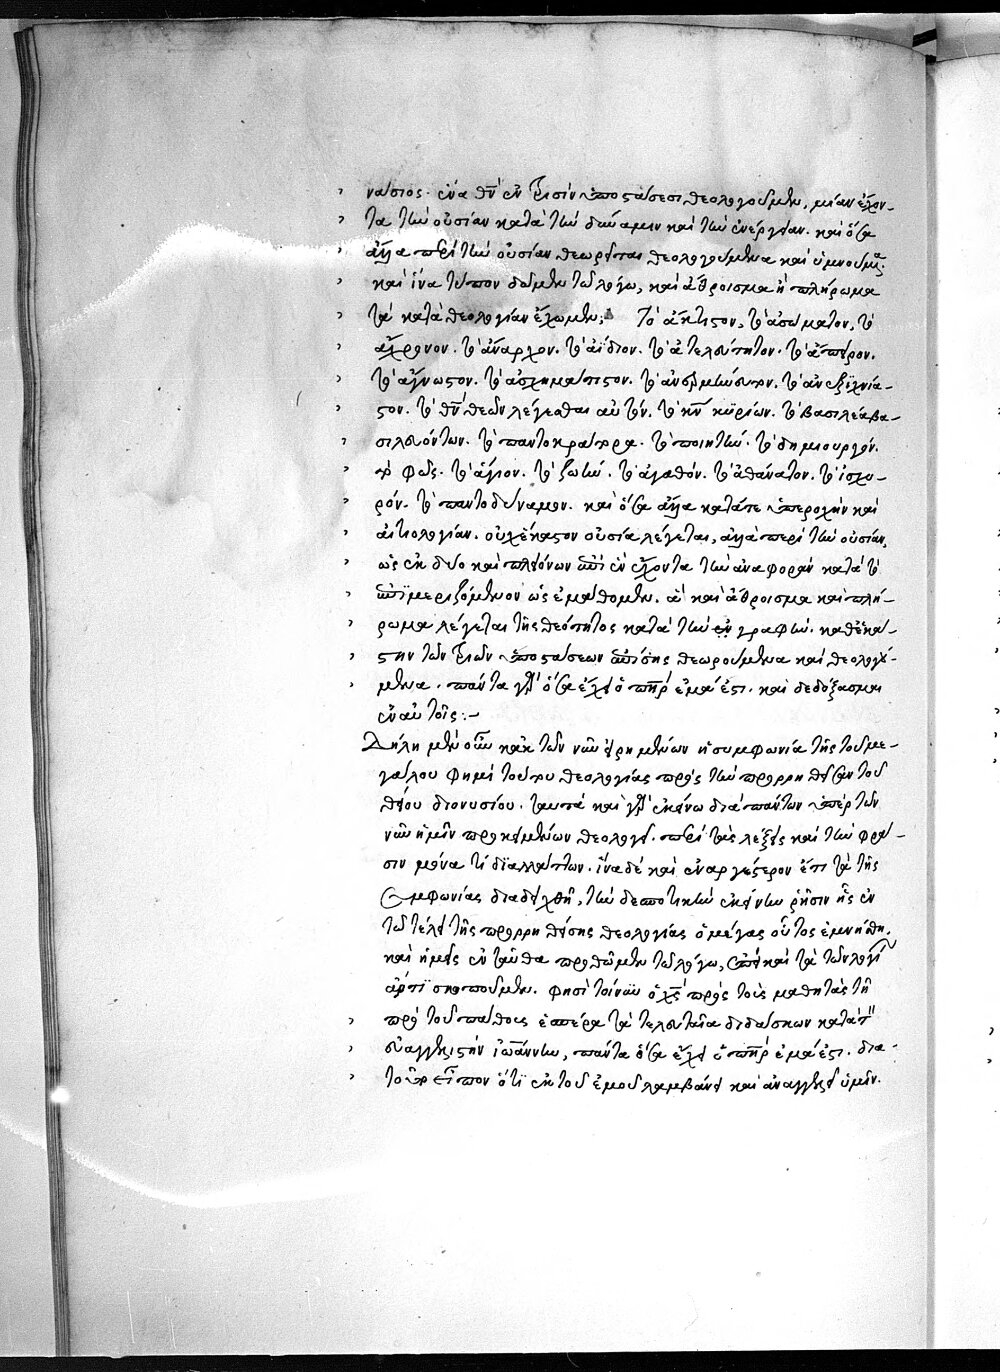 νάσιος· ἕνα θν̄ ἐν τρισὶν ὑποστάσεσι θεολογοῦμεν, μίαν ἔχον-
τα τὴν οὐσίαν κατὰ τὴν δύναμιν καὶ τὴν ἐνέργειαν. καὶ ὅσα
ἄλλα περὶ τὴν οὐσίαν θεωρεῖται θεολογούμενα καὶ ὑμνούμενα·
καὶ ἵνα τύπον δῶμεν τῶ λόγω, καὶ ἄθροισμα ἢ πλήρωμα
τὰ κατὰ θεολογίαν ἔχωμεν; Τὸ ἄκτιστον, τὸ ἀσώματον, τὸ
ἄχρονον. τὸ ἄναρχον. τὸ ἀΐδιον. τὸ ἀτελεύτητον. τὸ ἄπειρον.
τὸ ἄγνωστον. τὸ ἀσχημάτιστον. τὸ ἀνερμήνευτον. τὸ ἀνεξιχνία-
στον. τὸ θν̄ θεῶν λέγεσθαι αὐτόν. τὸ κν̄ κυρίων. τὸ βασιλέα βα-
σιλευόντων. τὸ παντοκράτορα. τὸ ποιητήν. τὸ δημιουργόν.
τὸ φῶς. τὸ ἅγιον. τὸ ζωήν. τὸ ἀγαθόν. τὸ ἀθάνατον. τὸ ἰσχυ-
ρόν. τὸ παντοδύναμον. καὶ ὅσα ἄλλα κατά τε ὑπεροχὴν καὶ
αἰτιολογίαν. οὐχ ἕκαστον οὐσία λέγεται, ἀλλὰ περὶ τὴν οὐσίαν,
ὡς ἐκ δύο καὶ πλειόνων ἐπὶ ἓν ἔχοντα τὴν ἀναφορὰν κατὰ τὸ
ἐπιμεριζόμενον ὡς ἐμάθομεν. ἃ καὶ ἄθροισμα καὶ πλή-
ρωμα λέγεται τῆς θεότητος κατὰ τὴν γραφήν. καθ' ἑκά-
στην τῶν τριῶν ὑποστάσεων ἐπίσης θεωρούμενα καὶ θεολογού-
μενα. πάντα γὰρ ὅσα ἔχει ὁ πηρ̄ ἐμά ἐστι. καὶ δεδόξασμαι
ἐν αὐτοῖς:-
Δήλη μὲν οὖν κἀκ τῶν νῦν εἰρημένων ἡ συμφωνία τῆς τοῦ με-
γάλου φημὶ τούτου θεολογίας πρὸς τὴν προρρηθεῖσαν τοῦ
θείου διονυσίου. ταυτὰ καὶ γὰρ ἐκείνω διὰ πάντων ὑπὲρ τῶν
νῦν ἡμῖν προκειμένων θεολογεῖ. περὶ τὰς λέξεις καὶ τὴν φρά-
σιν μόνα τι διαλλάττων. ἵνα δὲ καὶ ἐναργέστερον ἔτι τὰ τῆς
συμφωνίας διαδειχθῆ, τὴν δεσποτικὴν ἐκείνην ῥῆσιν ἧς ἐν
τῶ τέλει τῆς προρρηθείσης θεολογίας ὁ μέγας οὗτος ἐμνήσθη.
καὶ ἡμεῖς ἐνταῦθα προθῶμεν τῶ λόγω,
ἄρτι σκοποῦμεν. φησὶ τοίνυν ὁ χς̄ πρὸς τοὺς μαθητὰς τῆ
πρὸ τοῦ πάθους ἑσπέρα τὰ τελευταῖα διδάσκων κατὰ τὸν
εὐαγγελιστὴν ἰωάννην, πάντα ὅσα ἔχει ὁ πηρ̄ ἐμά ἐστι. διὰ
τοῦτο εἶπον ὅτι ἐκ τοῦ ἐμοῦ λαμβάνει καὶ ἀναγγελεῖ ὑμῖν.